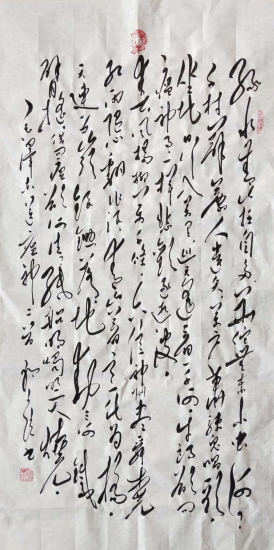 绿水青山枉自多华佗无奈小虫何
千村薜荔人遗矢万户萧疏鬼唱歌
坐地日行八万里巡天遥看一千河牛郎欲问
瘟神事一样悲欢逐逝波
春风杨柳万千条六亿神州尽舜尧
红雨随心翻作浪青山着意化为桥
天连五岭银锄落地动三河铁
臂摇借问瘟君欲何往纸船明烛照天烧
毛泽东送瘟神二首